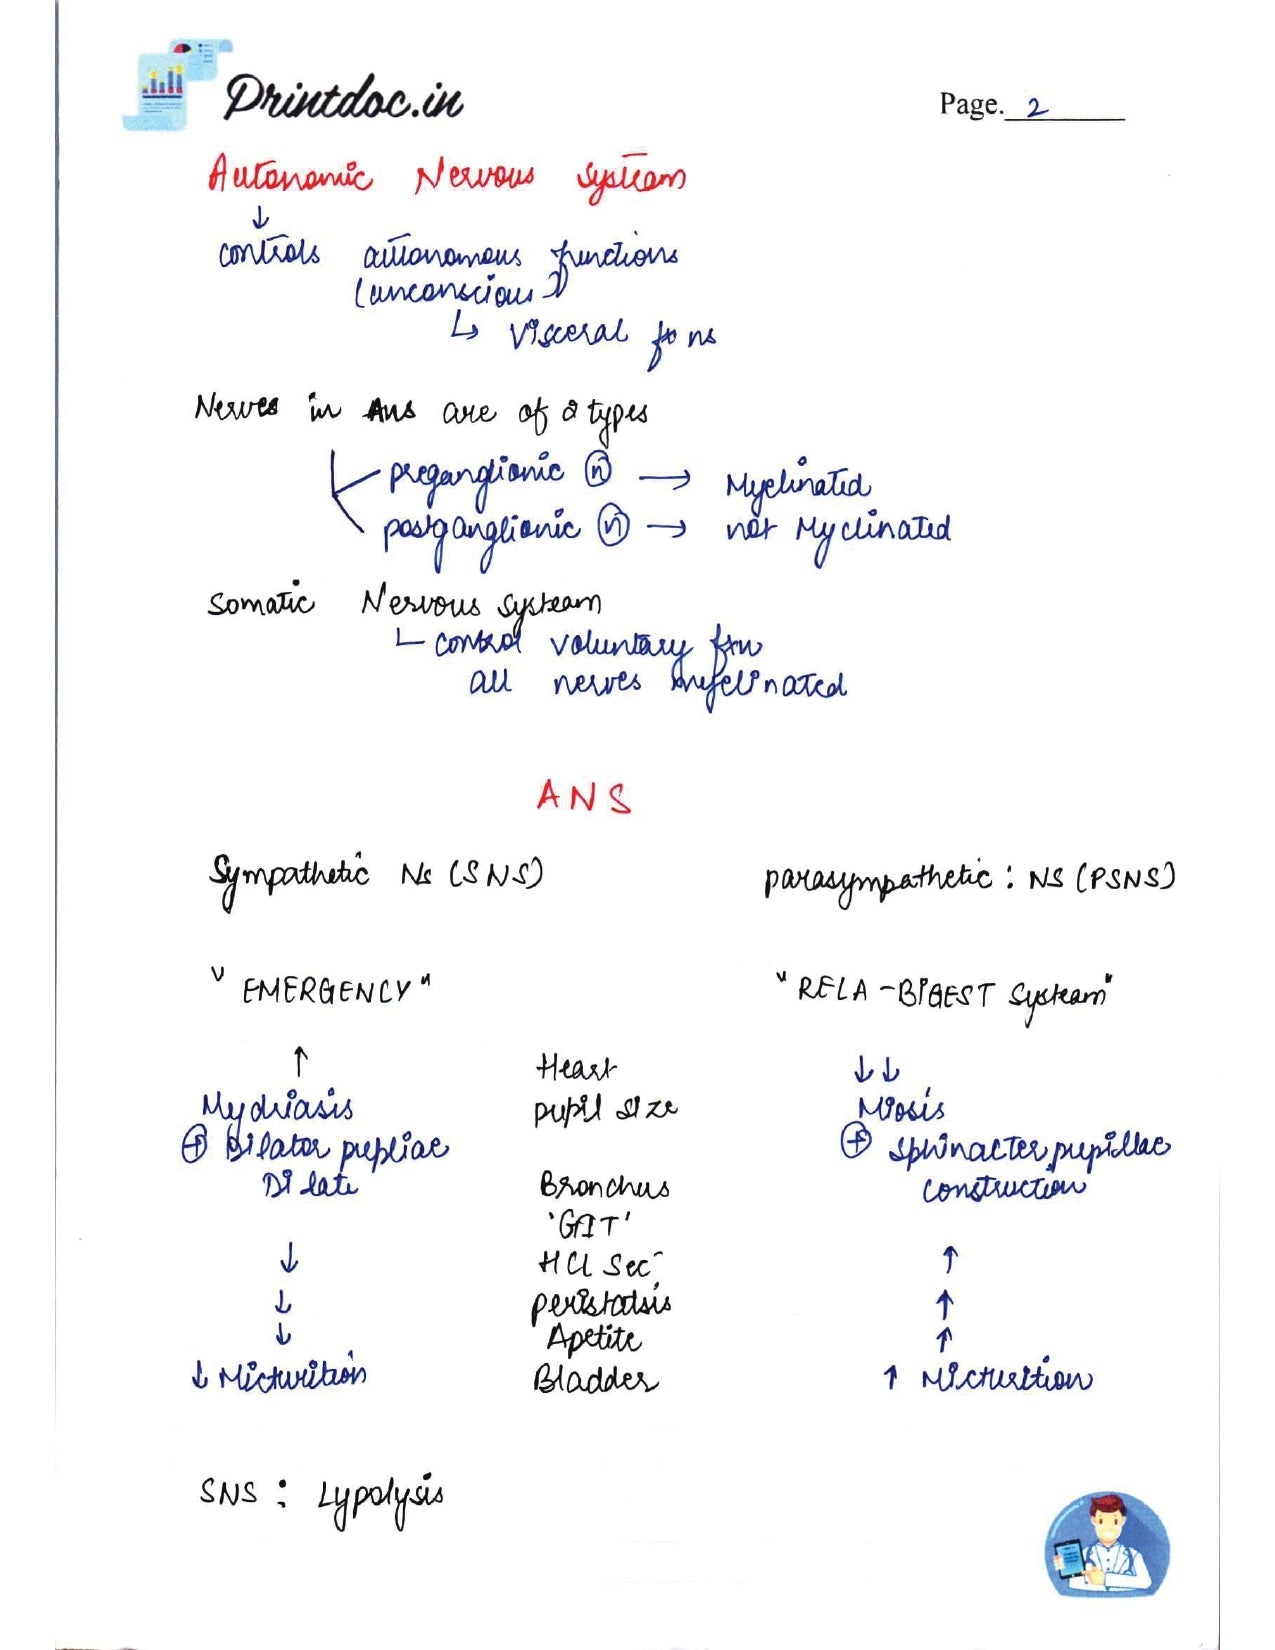 Printdoc.in
Page. 2
Autonomic Nervous System
↓
controls autonomous functions
(unconscious)
↳ Visceral fxns
Nerves in ANS are of 2 types
preganglionic (n) → Myelinated
postganglionic (n) → not Myelinated
Somatic Nervous Systeam
control voluntary fxn
all nerves myelinated
ANS
Sympathetic Ns (SNS) parasympathetic : NS (PSNS)
"EMERGENCY" "RELA-DIGEST Systeam"
↑ Heart ↓↓
Mydriasis pupil size Miosis
⊕ Dilator pupliae ⊕ Sphinacter pupillae
Dilate Bronchus construction
'GIT'
↓ HCl Sec- ↑
↓ peristalsis ↑
↓ Apetite ↑
↓ Micturition Bladder ↑ Micturition
SNS : Lypolysis